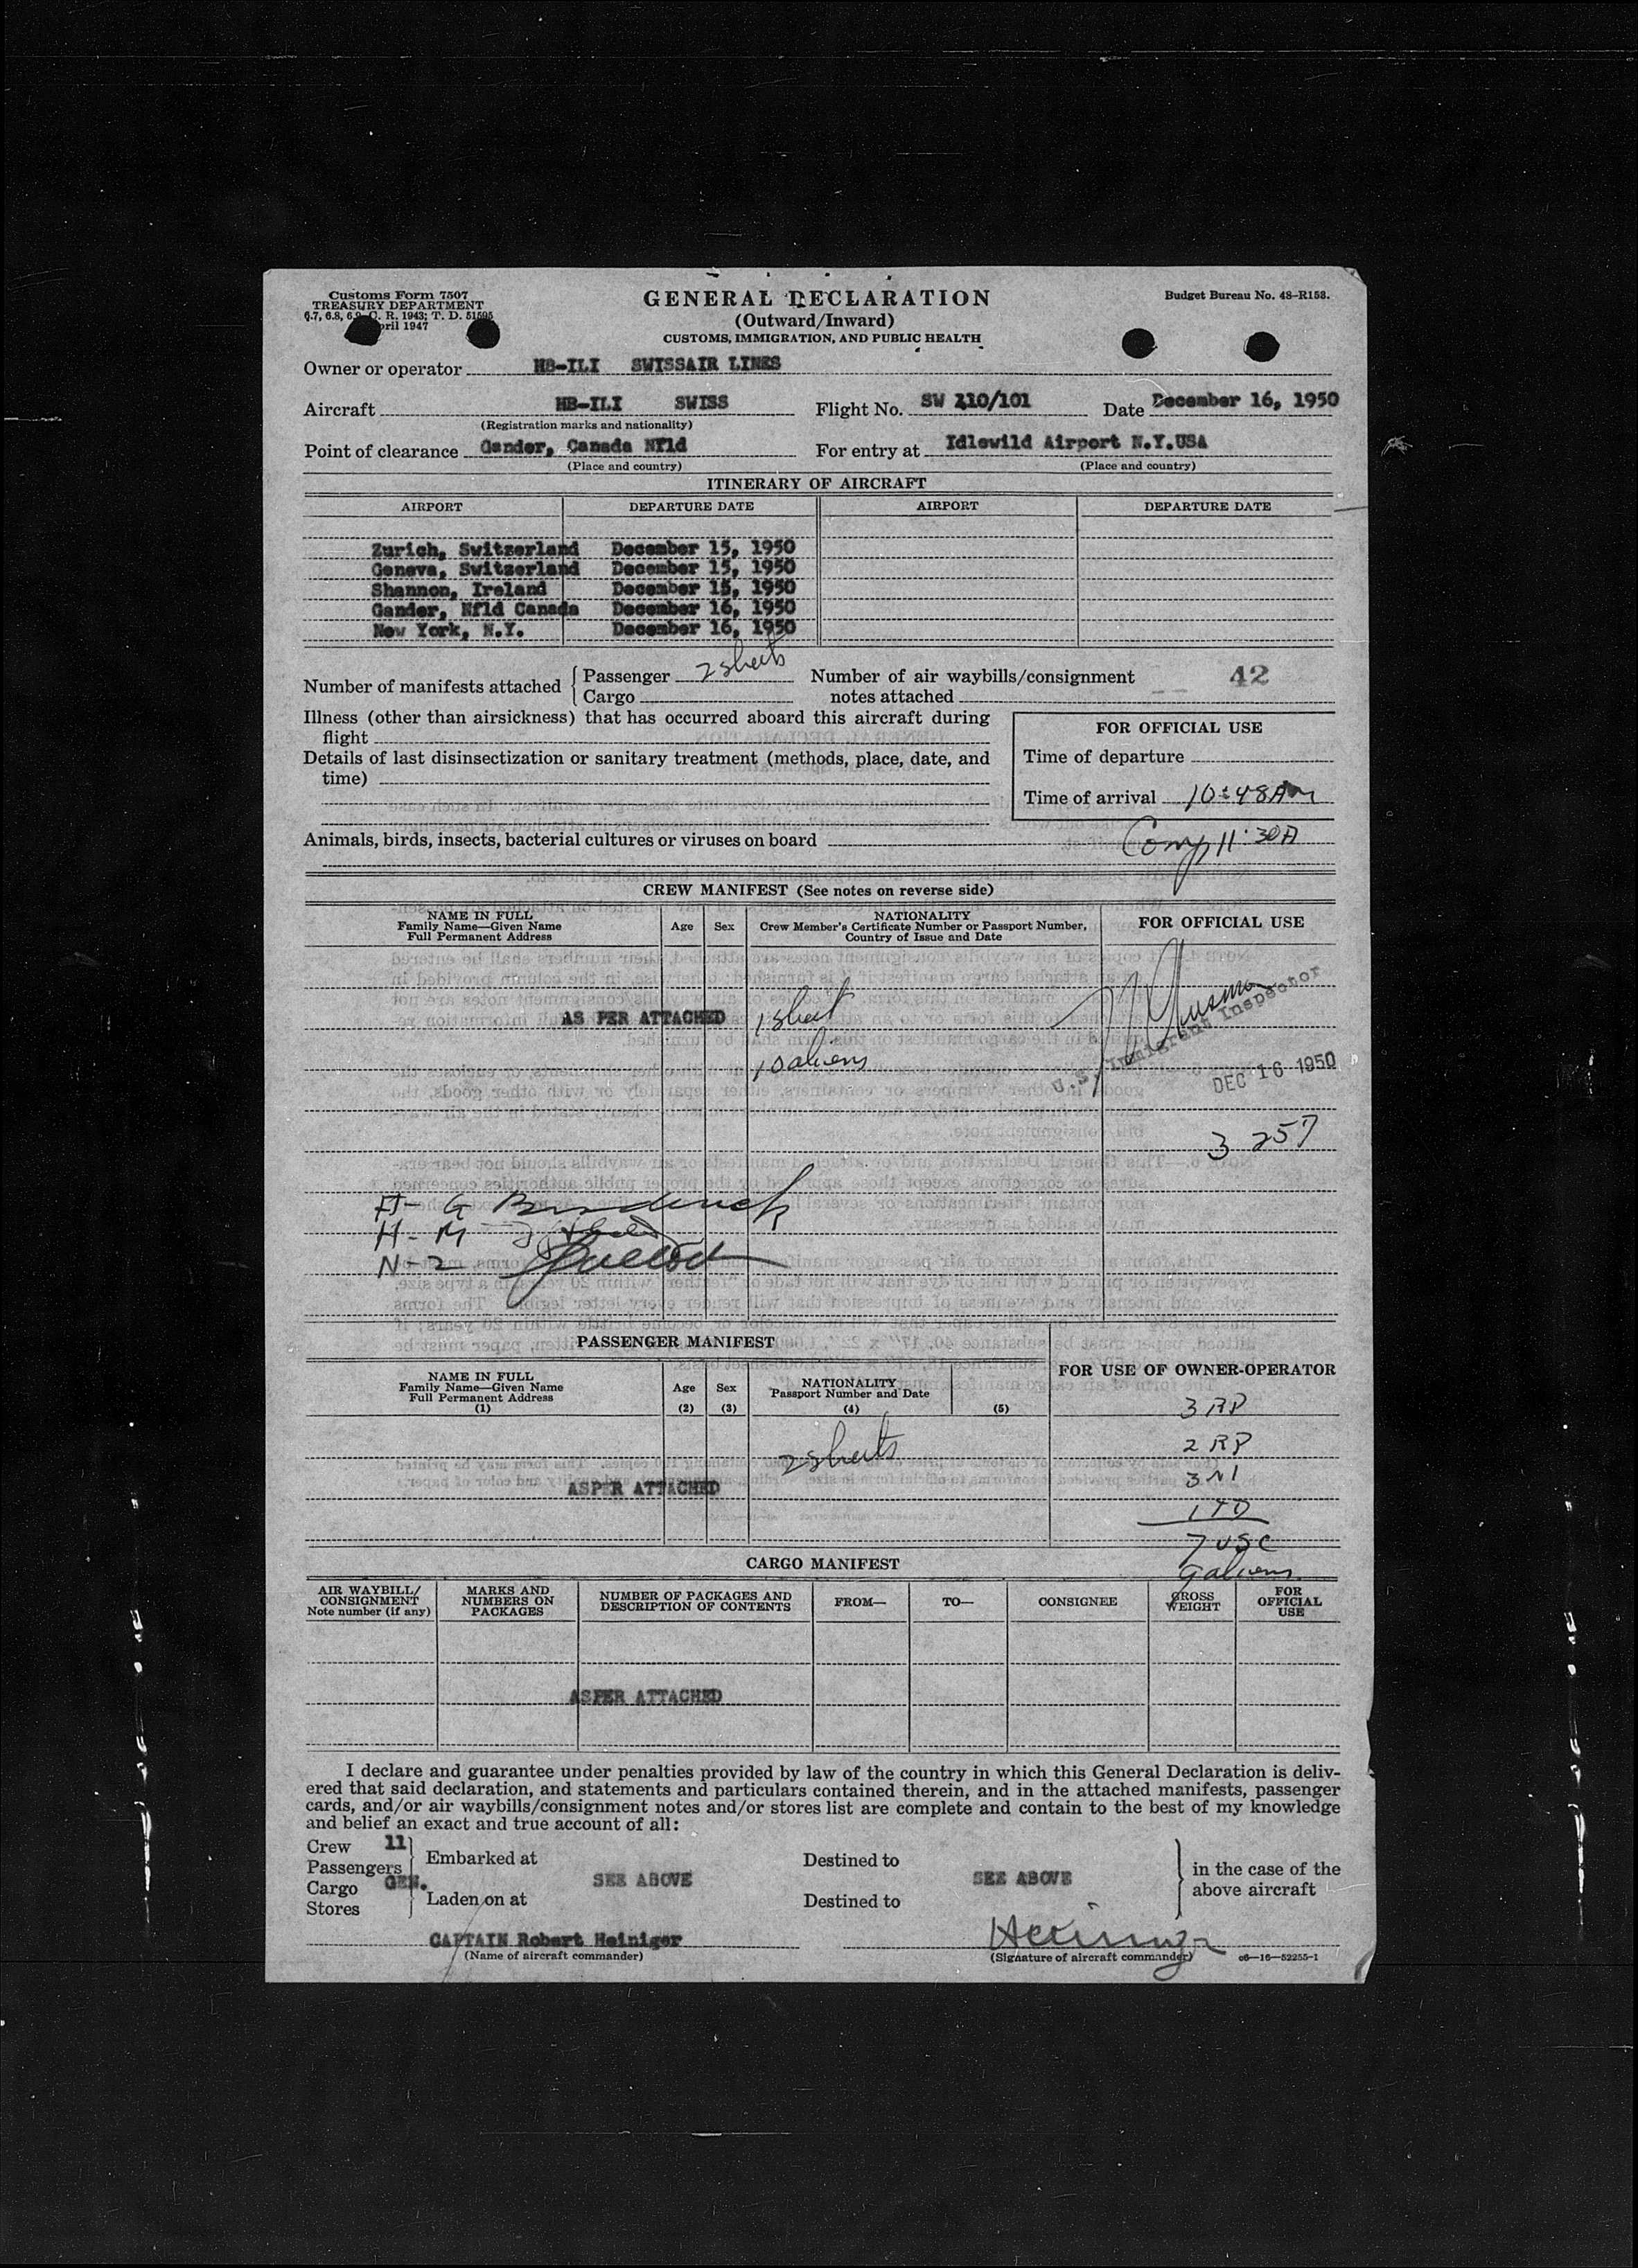 Customs Form 7507
TREASURY DEPARTMENT
6.7, 6.8, 6.9, C. R. 1943; T. D. 51595
April 1947
GENERAL DECLARATION
(Outward/Inward)
CUSTOMS, IMMIGRATION, AND PUBLIC HEALTH
Budget Bureau No. 48-R158.
Owner or operator HB-ILI SWISSAIR LINES
Aircraft HB-ILI SWISS Flight No. SW 210/101 Date December 16, 1950
(Registration marks and nationality)
Point of clearance Gander, Canada Nfld For entry at Idlewild Airport N.Y.USA
(Place and country) (Place and country)
ITINERARY OF AIRCRAFT
AIRPORT DEPARTURE DATE AIRPORT DEPARTURE DATE
Zurich, Switzerland December 15, 1950
Geneva, Switzerland December 15, 1950
Shannon, Ireland December 15, 1950
Gander, Nfld Canada December 16, 1950
New York, N.Y. December 16, 1950
Number of manifests attached { Passenger 2 sheets Number of air waybills/consignment 42
Cargo notes attached
Illness (other than airsickness) that has occurred aboard this aircraft during
flight
Details of last disinsectization or sanitary treatment (methods, place, date, and
time)
FOR OFFICIAL USE
Time of departure
Time of arrival 10:48AM
Comp 11:30A
Animals, birds, insects, bacterial cultures or viruses on board
CREW MANIFEST (See notes on reverse side)
NAME IN FULL
Family Name—Given Name
Full Permanent Address
Age Sex
NATIONALITY
Crew Member's Certificate Number or Passport Number,
Country of Issue and Date
FOR OFFICIAL USE
AS PER ATTACHED 1 sheet
10 aliens
U.S. Immigrant Inspector
DEC 16 1950
3 257
G
H - M
N - 2
PASSENGER MANIFEST
NAME IN FULL
Family Name—Given Name
Full Permanent Address
(1)
Age
(2)
Sex
(3)
NATIONALITY
Passport Number and Date
(4)
(5)
FOR USE OF OWNER-OPERATOR
3 RP
2 RP
3 NI
1 TD
7 USC
9 aliens
2 sheets
ASPER ATTACHED
CARGO MANIFEST
AIR WAYBILL/
CONSIGNMENT
Note number (if any)
MARKS AND
NUMBERS ON
PACKAGES
NUMBER OF PACKAGES AND
DESCRIPTION OF CONTENTS
FROM—
TO—
CONSIGNEE
GROSS
WEIGHT
FOR
OFFICIAL
USE
ASPER ATTACHED
I declare and guarantee under penalties provided by law of the country in which this General Declaration is deliv-
ered that said declaration, and statements and particulars contained therein, and in the attached manifests, passenger
cards, and/or air waybills/consignment notes and/or stores list are complete and contain to the best of my knowledge
and belief an exact and true account of all:
Crew 11
Passengers
Cargo GEN.
Stores
Embarked at
Laden on at
SEE ABOVE
Destined to
Destined to
SEE ABOVE
in the case of the
above aircraft
CAPTAIN Robert Heiniger
(Name of aircraft commander)
Heiniger
(Signature of aircraft commander)
c6—16—52255-1